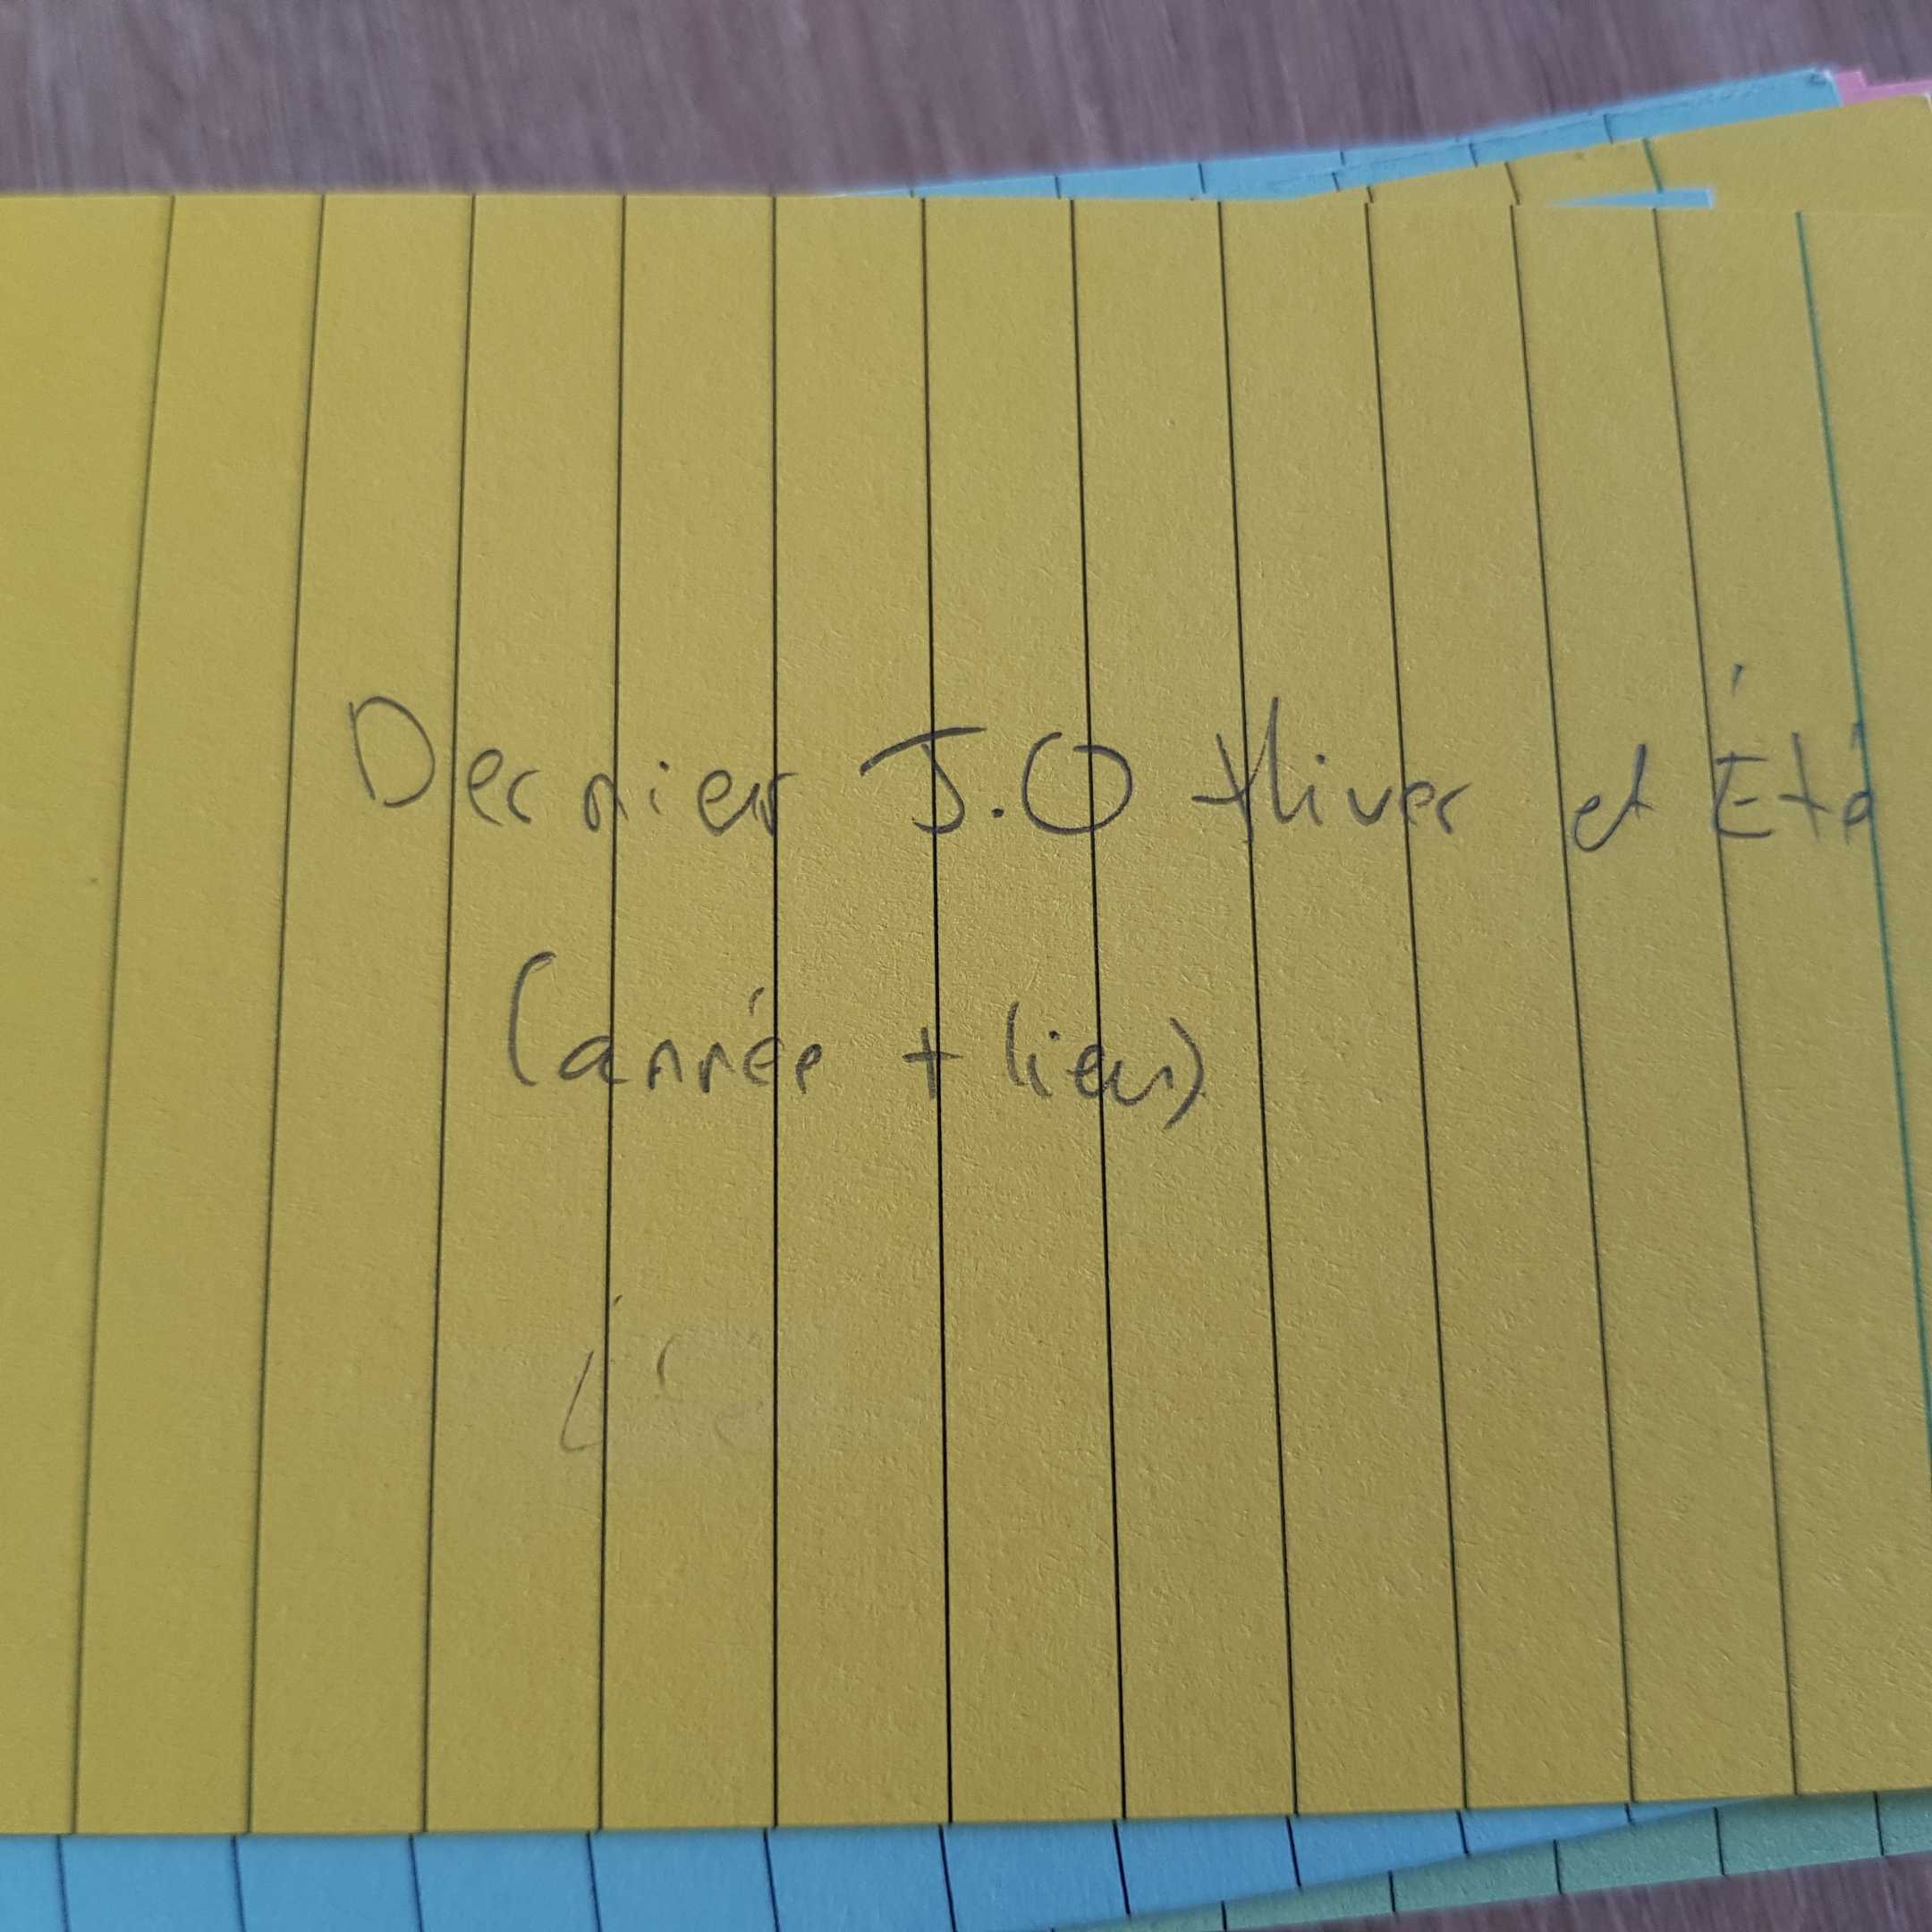 Dernier J.O Hiver et Été
(année + lieu)